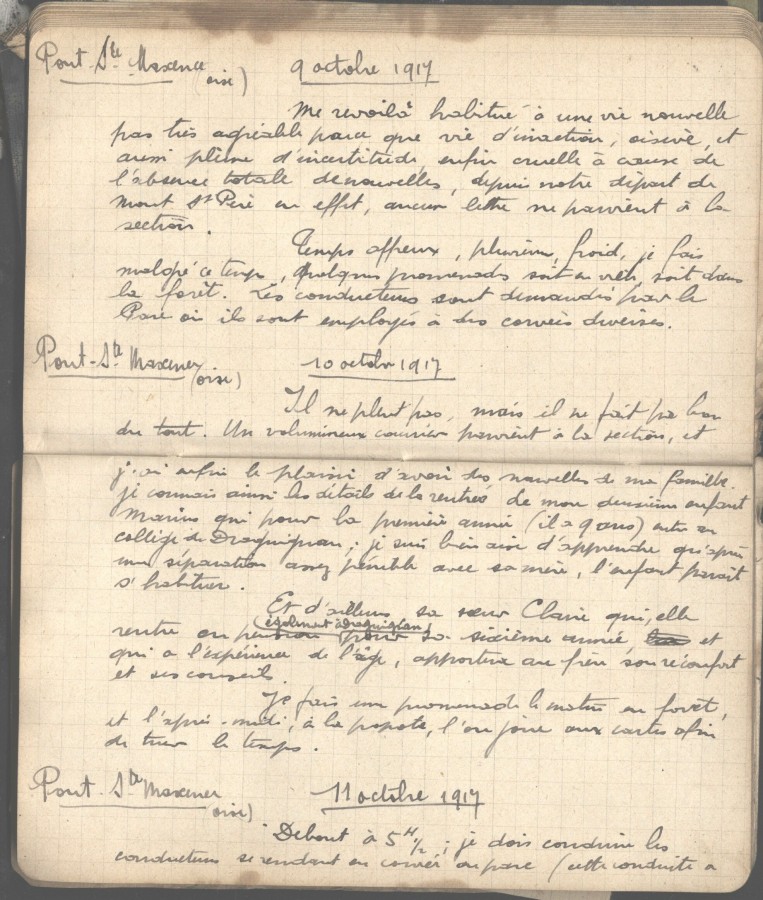 Pont-Ste Maxence (oise) 9 octobre 1917
Me revoilà habitué à une vie nouvelle
pas très agréable parce que vie d'inaction, oisive, et
aussi pleine d'incertitude, enfin cruelle à cause de
l'absence totale de nouvelles, depuis notre départ de
Mont St Père en effet, aucune lettre ne parvient à la
section.
Temps affreux, pluvieux, froid, je fais
malgré ce temps, quelques promenades soit en ville, soit dans
la forêt. Les conducteurs sont demandés par le
Parc où ils sont employés à des corvées diverses.
Pont-Ste Maxence (oise) 10 octobre 1917
Il ne pleut pas, mais il ne fait pas bon
du tout. Un volumineux courrier parvient à la section, et
j'ai enfin le plaisir d'avoir des nouvelles de ma famille.
je connais ainsi les détails de la rentrée de mon deuxième enfant
Marius qui pour la première année (il a 9 ans) entre au
collège de Draguignan; je suis bien aise d'apprendre qu'après
une séparation assez pénible avec sa mère, l'enfant paraît
s'habituer.
Et d'ailleurs sa sœur Claire qui, elle
également à Draguignan
rentre en pension pour sa sixième année, et
qui a l'expérience de l'âge, apportera au frère son réconfort
et ses conseils.
Je fais une promenade le matin en forêt,
et l'après-midi, à la popote, l'on joue aux cartes afin
de tuer le temps.
Pont-Ste Maxence (oise) 11 octobre 1917
Debout à 5H 1/2; je dois conduire les
conducteurs se rendant en corvée au parc (cette conduite a